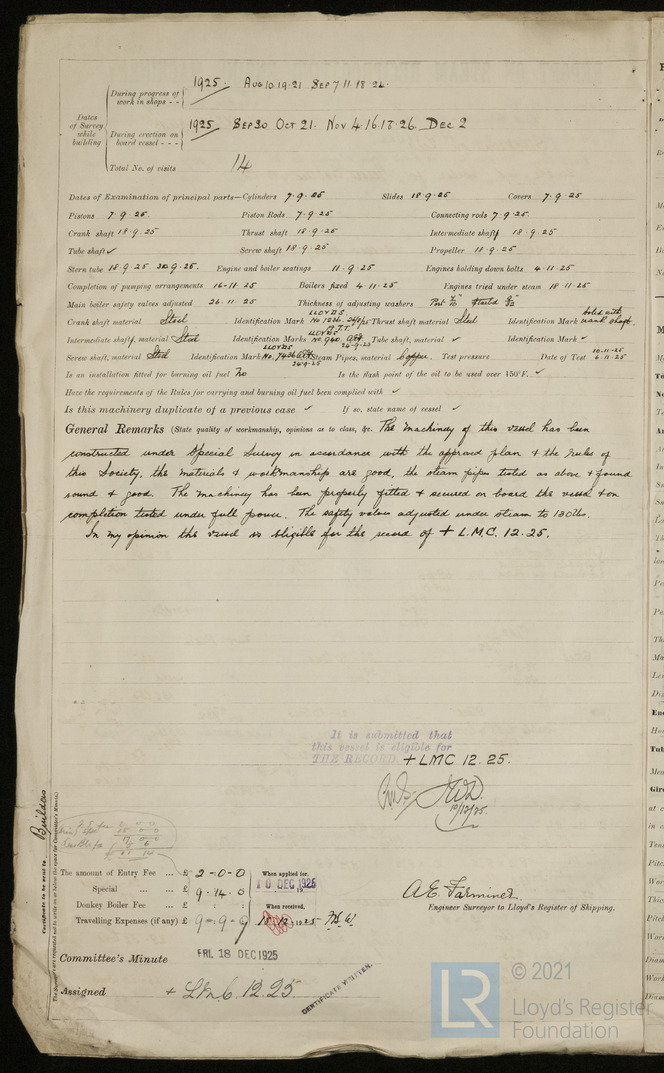 During progress of work in shops - - 1925. Aug 10. 19. 21 Sep 7 11. 18 24.
Dates of Survey while building
During erection on board vessel - - - 1925 Sep 30 Oct 21. Nov 4. 16. 18. 26. Dec. 2
Total No. of visits 14
Dates of Examination of principal parts—Cylinders 7.9.25 Slides 18.9.25 Covers 7.9.25
Pistons 7.9.25. Piston Rods 7.9.25 Connecting rods 7.9.25.
Crank shaft 18.9.25 Thrust shaft 18.9.25 Intermediate shaft 18.9.25
Tube shaft ✓ Screw shaft 18.9.25 Propeller 18.9.25
Stern tube 18.9.25. 30.9.25. Engine and boiler seatings 11.9.25 Engines holding down bolts 4.11.25
Completion of pumping arrangements 16-11-25 Boilers fixed 4.11.25 Engines tried under steam 18.11.25
Main boiler safety valves adjusted 26.11.25 Thickness of adjusting washers Port
Crank shaft material Steel Identification Mark LLOYDS No 1226. Thrust shaft material Steel Identification Mark Solid with crank shaft.
Intermediate shaft, material Steel Identification Marks LLOYDS No. 940 24-9-25 Tube shaft, material ✓ Identification Mark ✓
Screw shaft, material Steel Identification Mark LLOYDS No. 7436 24-9-25 Steam Pipes, material Copper. Test pressure Date of Test 10-11-25 6.11.25
Is an installation fitted for burning oil fuel No Is the flash point of the oil to be used over 150°F. ✓
Have the requirements of the Rules for carrying and burning oil fuel been complied with ✓
Is this machinery duplicate of a previous case ✓ If so, state name of vessel ✓
General Remarks (State quality of workmanship, opinions as to class, &c. The machinery of this vessel has been
constructed under Special Survey in accordance with the approved plan & the Rules of
this Society, the materials & workmanship are good, the steam pipes tested as above & found
sound & good. The machinery has been properly fitted & secured on board the vessel & on
completion tested under full power. The safety valves adjusted under steam to 130 lbs.
In my opinion the vessel is eligible for the record of + L.M.C. 12.25.
It is submitted that
this vessel is eligible for
THE RECORD. + LMC 12.25.
10/12/25.
Certificate to be sent to Builders
The amount of Entry Fee ... £ 2-0-0 When applied for,
Special ... ... £ 9.14.0 10 DEC 1925
Donkey Boiler Fee ... £ When received,
Travelling Expenses (if any) £ 9-9-9
A.E. Farminer
Engineer Surveyor to Lloyd's Register of Shipping.
Committee's Minute FRI. 18 DEC 1925
Assigned + LMC. 12.25
CERTIFICATE WRITTEN.
LR © 2021
Lloyd's Register
Foundation